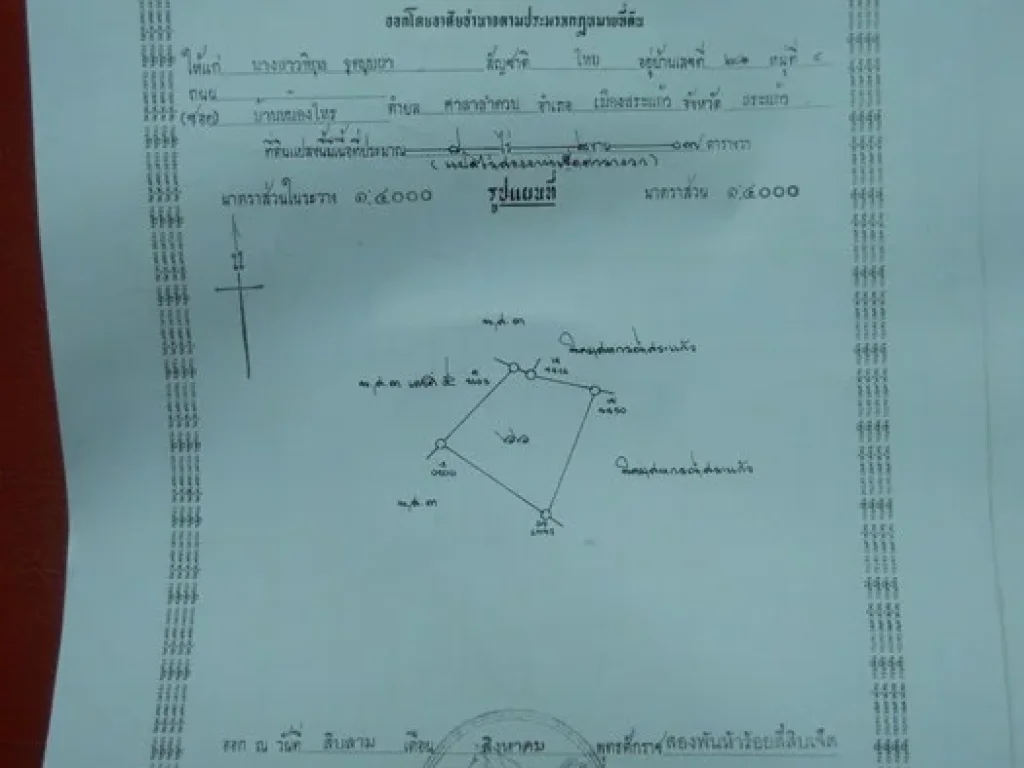 ออกโดยอาศัยอำนาจตามประมวลกฎหมายที่ดิน
ให้แก่ นางสาว สัญชาติ ไทย อยู่บ้านเลขที่ ๒๑ หมู่ที่ ๔
ถนน
(ซอย) บ้านหนองไทร ตำบล ศาลาลำดวน อำเภอ เมืองสระแก้ว จังหวัด สระแก้ว
ที่ดินแปลงนี้มีเนื้อที่ประมาณ ๘ ไร่ ๒ งาน ๐๗ ตารางวา
(แปดไร่สองงานเจ็ดตารางวา)
มาตราส่วนในระวาง ๑:๔๐๐๐ รูปแผนที่ มาตราส่วน ๑:๔๐๐๐
น
น.ส.๓
นิคมสหกรณ์สระแก้ว
น.ส.๓ เลขที่
นิคมสหกรณ์สระแก้ว
น.ส.๓
ออก ณ วันที่ สิบสาม เดือน สิงหาคม พุทธศักราช สองพันห้าร้อยสี่สิบเจ็ด